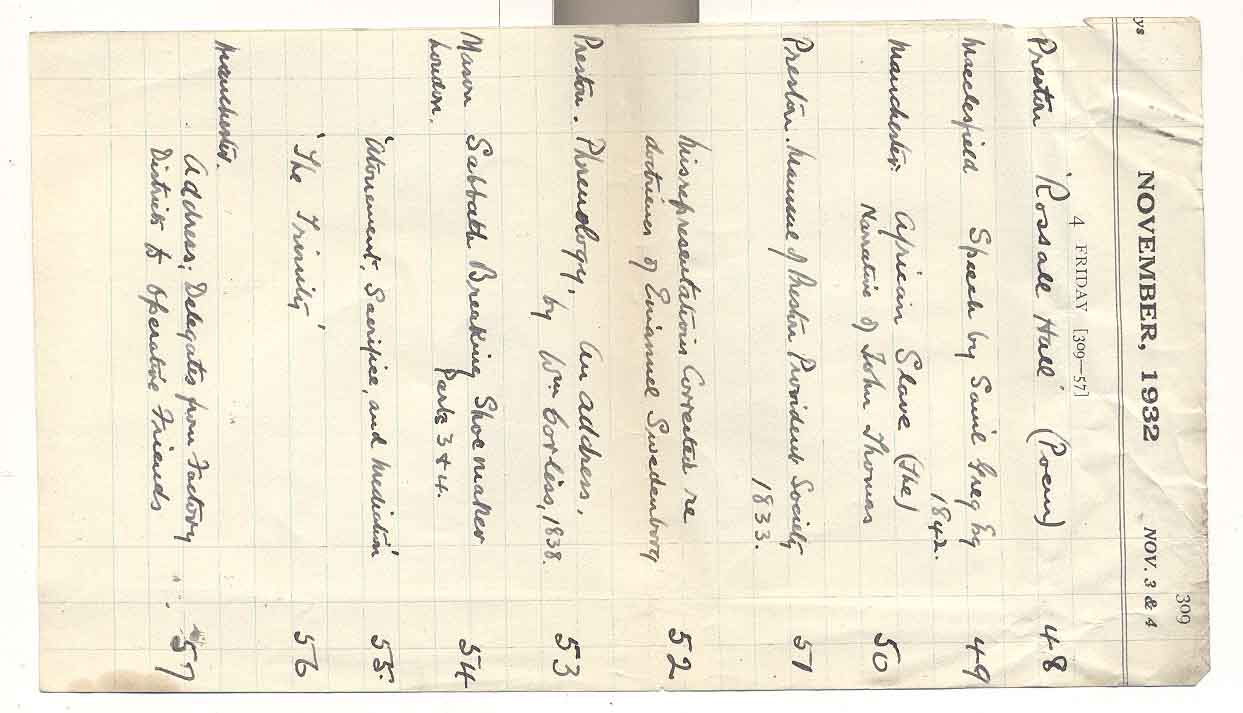 309
ys NOVEMBER, 1932 NOV. 3 & 4
4 FRIDAY [309—57]
Preston 'Rossall Hall' (Poem) 48
Macclesfield Speech by Saml Greg Esq
1842. 49
Manchester. African Slave (The)
Narrative of John Thomas 50
Preston. Manual of Preston Provident Society
1833. 51
Misrepresentations Corrected re
doctrines of Emanuel Swedenborg 52
Preston. Phrenology, an address,
by Wm Corless, 1838. 53
Mason Sabbath Breaking Shoemaker
London. Parts 3 & 4. 54
'Atonement, Sacrifice, and Mediation' 55
'The Trinity' 56
Manchester.
Address; Delegates from Factory
Districts to Operative Friends 57